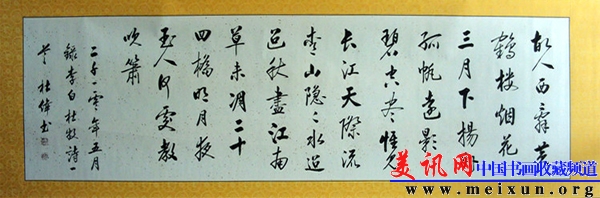 故人西辭黃
鶴樓烟花
三月下揚州
孤帆遠影
碧空盡惟見
長江天際流
青山隐隐水迢
迢秋盡江南
草未凋二十
四橋明月夜
玉人何處教
吹簫
二千一零年五月
録李白杜牧詩一
杜偉书
美讯网 中国书画收藏频道
www.meixun.org